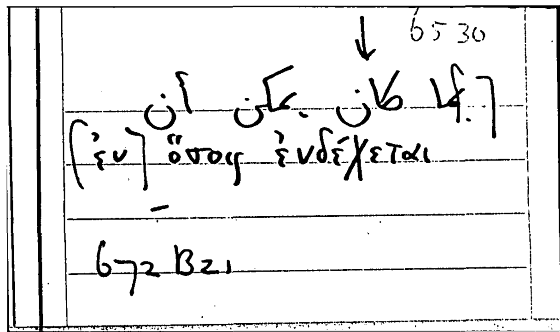 6530
↓
[فيما كان يمكن أن
[ἐν] ὅσοις ἐνδέχεται
672 B21